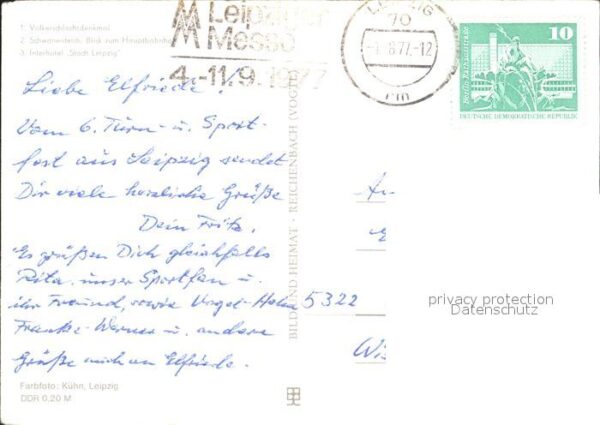 1. Völkerschlachtdenkmal
2. Schwanenteich, Blick zum Hauptbahnhof
3. Interhotel „Stadt Leipzig"
MM Leipziger
Messe
4.-11.9.1977
LEIPZIG
70
-1.-8.77.-12
10
Berlin, Rathausstraße
DEUTSCHE DEMOKRATISCHE REPUBLIK
Liebe Elfriede!
Vom 6. Turn- u. Sport-
fest aus Leipzig sendet
Dir viele herzliche Grüße
Dein Fritz.
Es grüßen Dich gleichfalls
Rita, unser Sportfan u.
ihr Freund, sowie Vogel-Heinz
Franke-Werner u. andere
Grüße auch an Elfriede.
5322
BILD UND HEIMAT · REICHENBACH (VOGTL)
privacy protection
Datenschutz
Farbfoto: Kühn, Leipzig
DDR 0,20 M